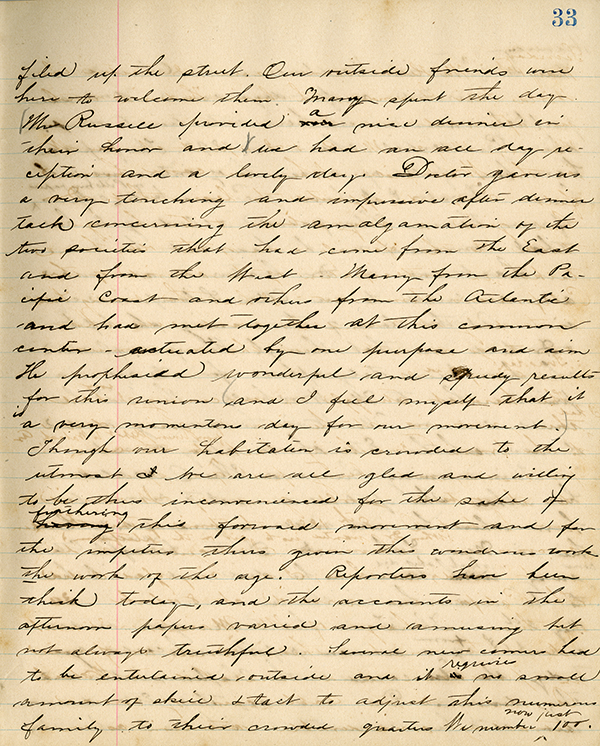 33
filed up the street. Our outside friends were
here to welcome them. Many spent the day.
(Mr Russell provided a nise dinner in
their honor and we had an all day re-
ception and a lovely day. Doctor gave us
a very touching and impressive after dinner
talk concerning the amalgamation of the
two societies that had come from the East
and from the West. Many from the Pa-
cific Coast and others from the Atlantic
and had met together at this common
center - actuated by one purpose and aim
He prophesied wonderful and speedy results
for this union (and I feel myself that it
is a very momentous day for our movement.)
Though our habitation is crowded to the
utmost We are all glad and willing
to be thus inconvenienced for the sake of
furthering this forward movement and for
the impetus thus given this wondrous work
the work of the age. Reporters have been
thick today, and the accounts in the
afternoon papers varied and amusing but
not always truthful. Several new comers had
to be entertained outside and it require no small
amount of skill & tact to adjust this numerous
family to their crowded quarters We now number just 100.